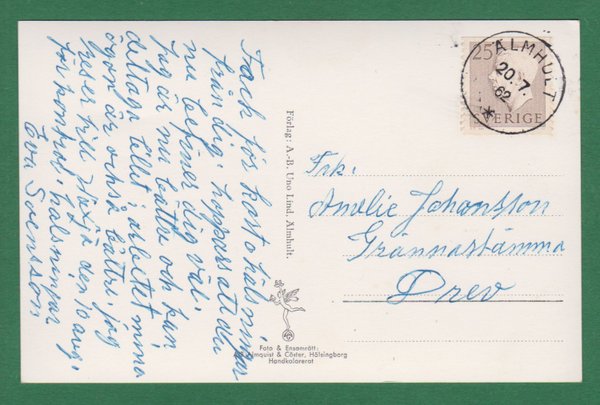 Tack för kort o hälsningar
från dig, hoppas att du
nu befiner dig väl.
Jag är nu bättre och kan
deltaga litet i arbetet mina
ögon är också bättre, jag
reser till Växjö den 10 aug.
för kontrol. hälsningar
Eva Svensson
Förlag: A.-B. Uno Lind, Älmhult.
Foto & Ensamrätt:
Almquist & Cöster, Hälsingborg
Handkolorerat
25
SVERIGE
ÄLMHULT
20.7.
62
Frk.
Amelie Johansson
Grännastämma
Drev